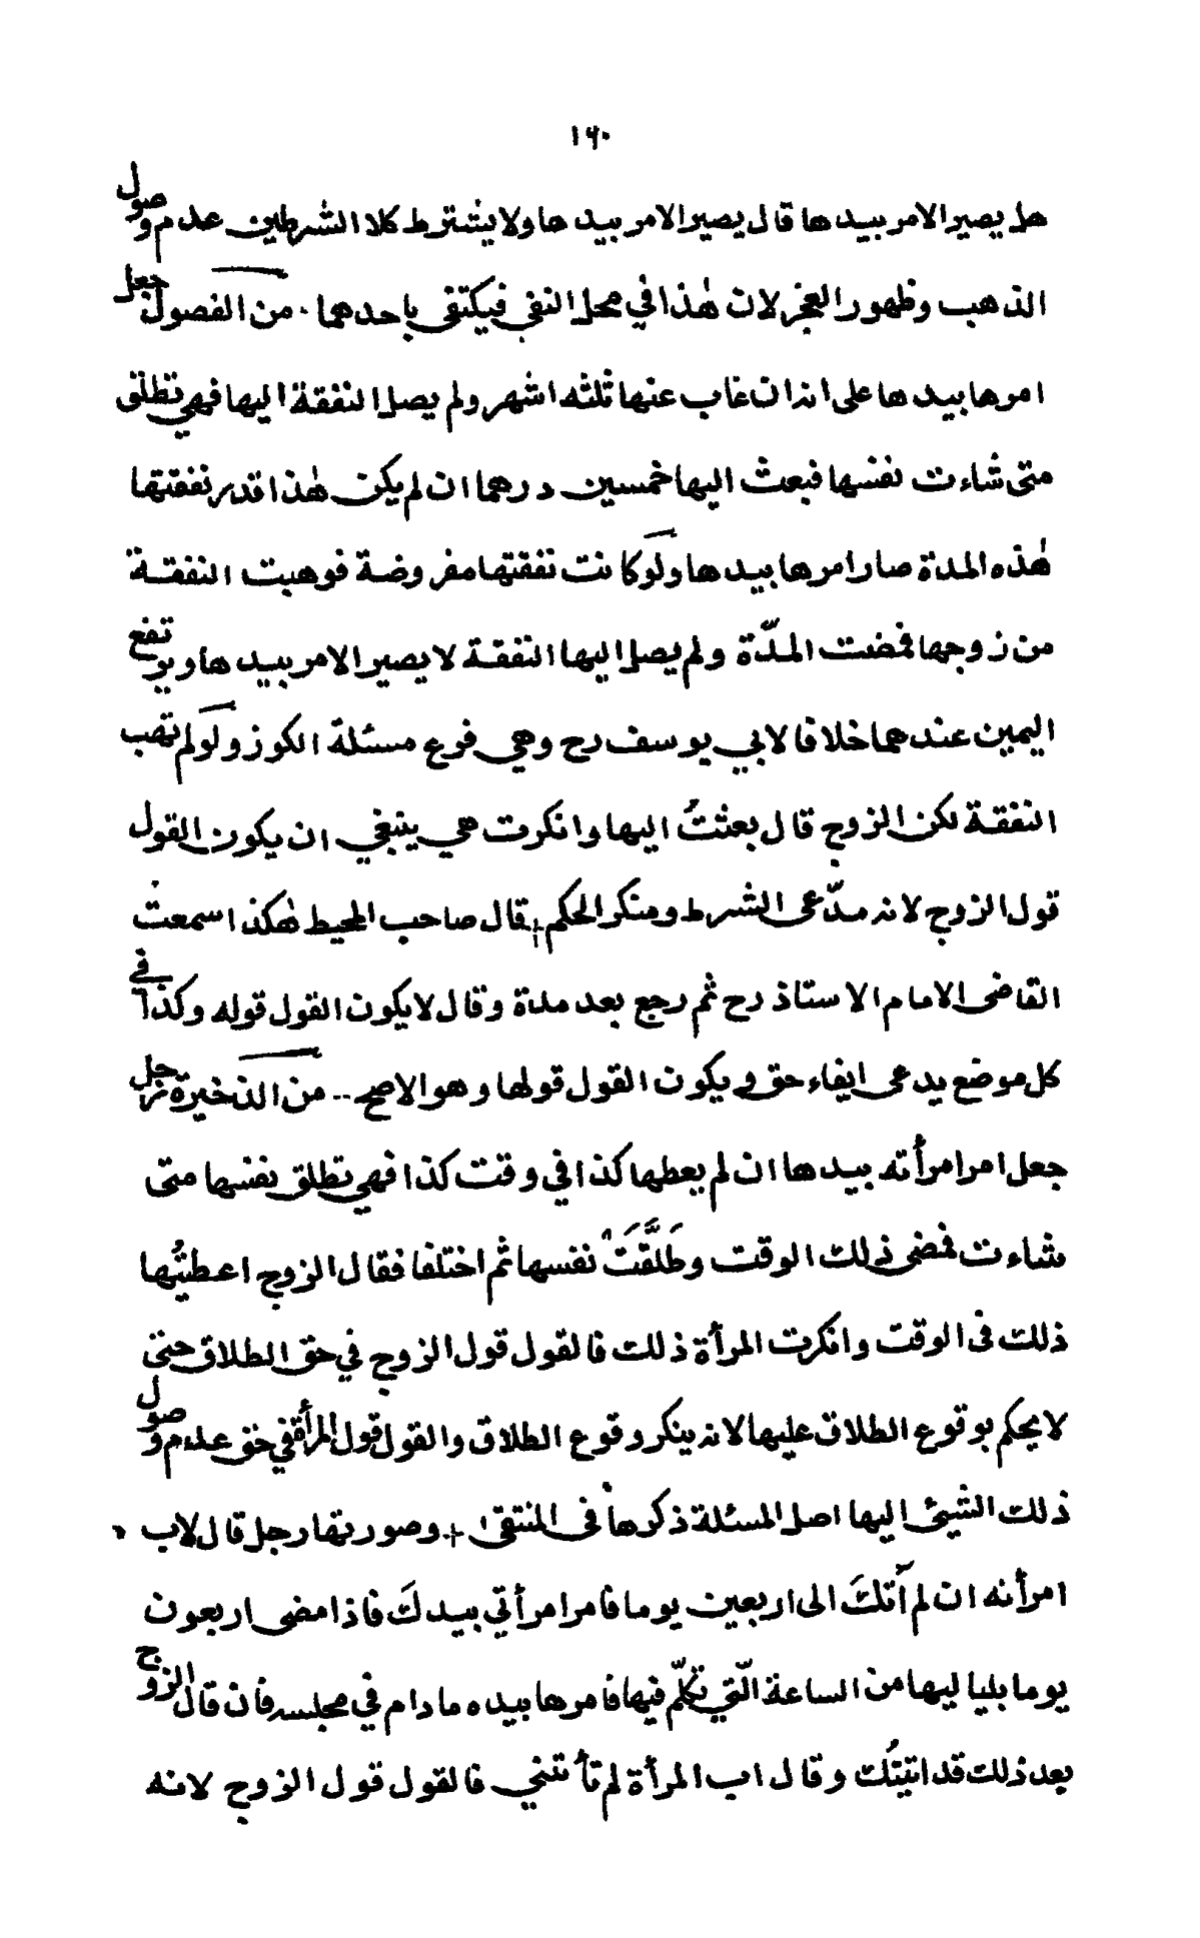 ١٦٠
هل يصير الامر بيدها قال يصير الامر بيدها ولا يشترط كلا الشرطين عدم وصول
الذهب وظهور العجز لان هٰذا في محل النفي فيكتفى باحدهما ٠ من الفصول جعل
امرها بيدها على انه ان غاب عنها ثلثه اشهر ولم يصل النفقة اليها فهي تطلق
متى شاءت نفسها فبعث اليها خمسين درهما ان لم يكن هٰذا قدر نفقتها
هٰذه المدة صار امرها بيدها ولو كانت نفقتها مفروضة فوهبت النفقة
من زوجها فمضت المدّة ولم يصل اليها النفقة لا يصير الامر بيدها ويرتفع
اليمين عندهما خلافا لابي يوسف رح وهي فرع مسئلة الكوز ولو لم تهب
النفقة لكن الزوج قال بعثتُ اليها وانكرت هي ينبغي ان يكون القول
قول الزوج لانه مدّعى الشرط ومنكر الحكم + قال صاحب المحيط هٰكذا سمعت
القاضى الامام الاستاذ رح ثم رجع بعد مدة وقال لا يكون القول قوله وكذا في
كل موضع يدعى ايفاء حق ويكون القول قولها وهو الاصح -- من الذخيرة رجل
جعل امر امرأته بيدها ان لم يعطها كذا في وقت كذا فهي تطلق نفسها متى
شاءت فمضى ذلك الوقت وطَلَّقَتْ نفسها ثم اختلفا فقال الزوج اعطيتُها
ذلك فى الوقت وانكرت المرأة ذلك فالقول قول الزوج في حق الطلاق حتى
لا يحكم بوقوع الطلاق عليها لانه ينكر وقوع الطلاق والقول قول المرأة في حق عدم وصول
ذلك الشيئ اليها اصل المسئلة ذكرها فى المنتقى + وصورتها رجل قال لاب
امرأته ان لم آتكَ الى اربعين يوما فامر امرأتي بيدكَ فاذا مضى اربعون
يوما بلياليها من الساعة الّتي تكلّم فيها فامرها بيده ما دام في مجلسه فان قال الزوج
بعد ذلك قد اتيتُك وقال اب المرأة لم تأتني فالقول قول الزوج لانه